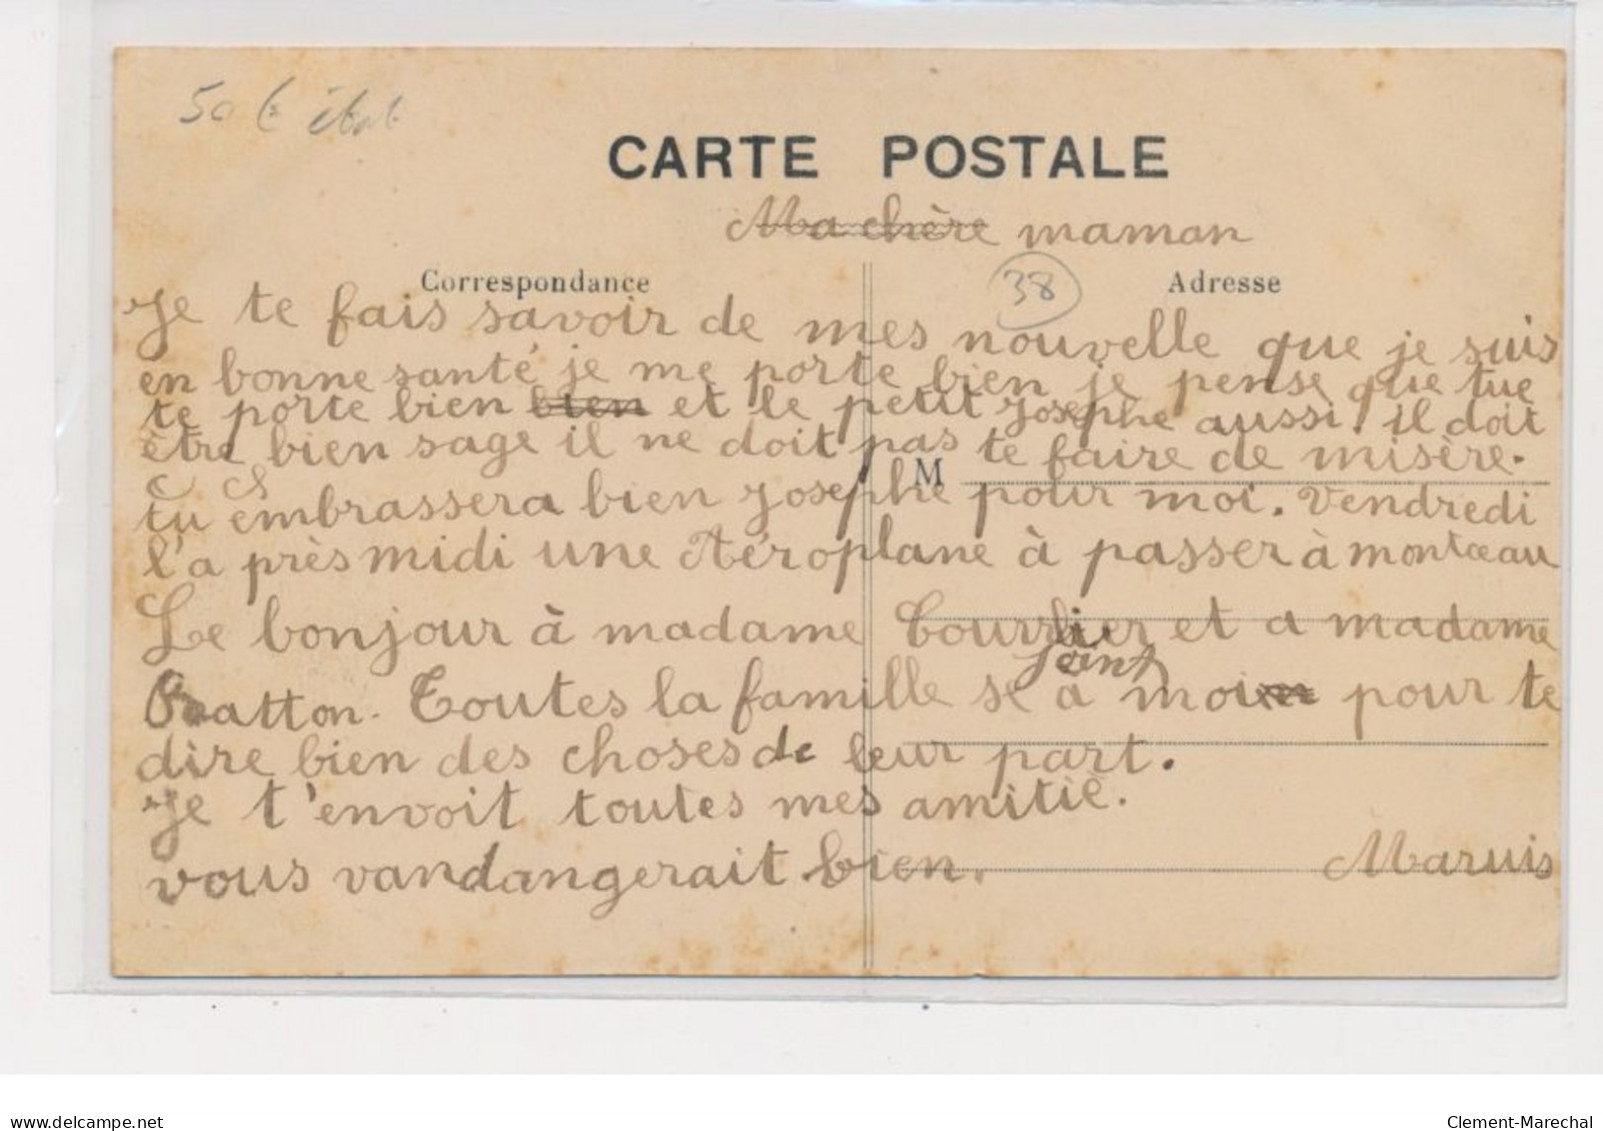 50 € état
CARTE POSTALE
Ma chère maman
Correspondance
38
Adresse
Je te fais savoir de mes nouvelle que je suis
en bonne santé je me porte bien je pense que tue
te porte bien bien et le petit Josephe aussi. il doit
être bien sage il ne doit pas te faire de misère.
M
tu embrassera bien Josephe pour moi. Vendredi
l'a près midi une Aéroplane à passer à montceau
Le bonjour à madame Courrier et a madame
Ratton. Toutes la famille se joint a moi pour te
dire bien des choses de leur part.
Je t'envoit toutes mes amitié.
vous vandangerait bien. Maruis
www.delcampe.net
Clement-Marechal